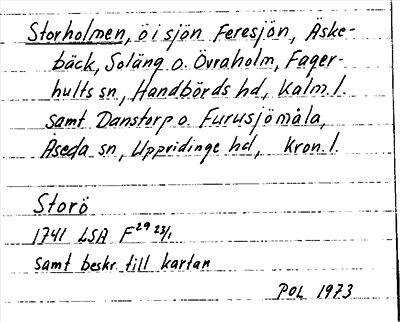 Storholmen, ö i sjön Feresjön, Äske-
bäck, Soläng o. Övraholm, Fager-
hults sn, Handbörds hd, Kalm. l.
samt Danstorp o. Furusjömåla,
Åseda sn, Uppvidinge hd, Kron. l.
Storö
1741 LSA F29 23/1
samt beskr. till kartan
POL 1973